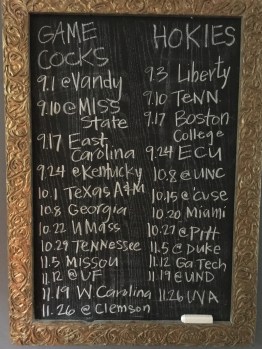 GAME
COCKS
9.1 @Vandy
9.10 @MISS
State
9.17 East
Carolina
9.24 @Kentucky
10.1 Texas A&M
10.8 Georgia
10.22 U Mass
10.29 Tennessee
11.5 Missou
11.12 @UF
11.19 W Carolina
11.26 @Clemson
HOKIES
9.3 Liberty
9.10 TeNN
9.17 Boston
College
9.24 ECU
10.8 @UNC
10.15 @'cuse
10.20 Miami
10.27 @Pitt
11.5 @Duke
11.12 Ga Tech
11.19 @UND
11.26 UVA